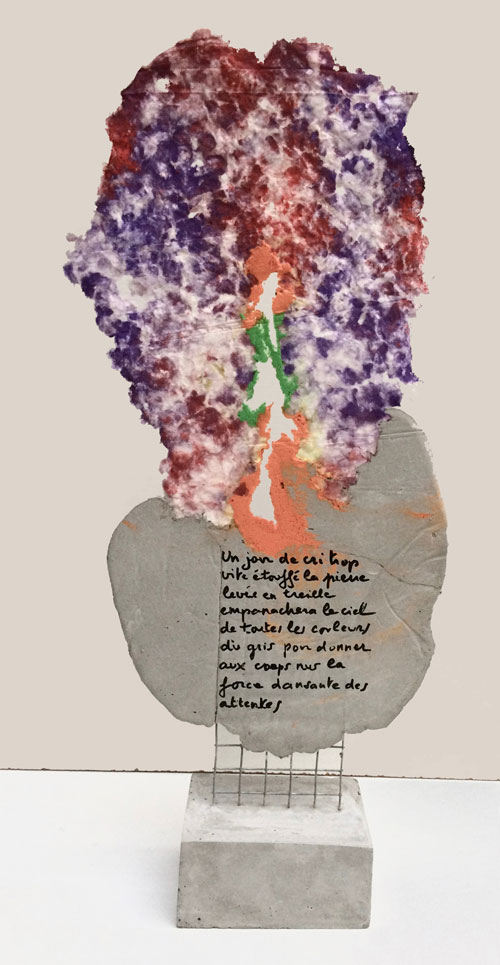 Un jour de cri trop
vite étouffé la pierre
levée en treille
empanachera le ciel
de toutes les couleurs
du gris pour donner
aux corps nus la
force dansante des
attentes